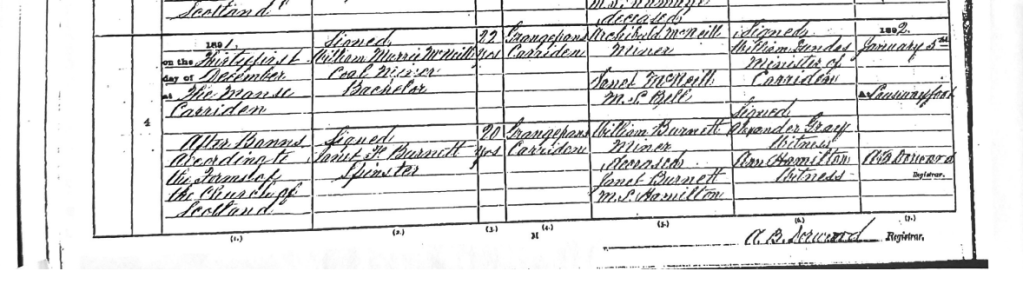 Scotland
deceased
4
1891.
on the Thirtyfirst
day of December
at The Manse
Carriden
After Banns
According to
the Forms of
the Church of
Scotland
Signed
William Murrie McNeill
Coal Miner
Bachelor
Signed
Janet H. Burnett
Spinster
22
yrs
20
yrs
Grangepans
Carriden
Grangepans
Carriden
Archibald McNeill
Miner
Janet McNeill
M.S. Bell
William Burnett
Miner
deceased
Janet Burnett
M.S. Hamilton
Signed
William Dundas
Minister of
Carriden
Signed
Alexander Gray
Witness
Ann Hamilton
Witness
1892
January 5th
At Causewayfoot
A B Dorward
Registrar.
(1.) (2.) (3.) (4.) (5.) (6.) (7.)
M
A. B. Dorward Registrar.